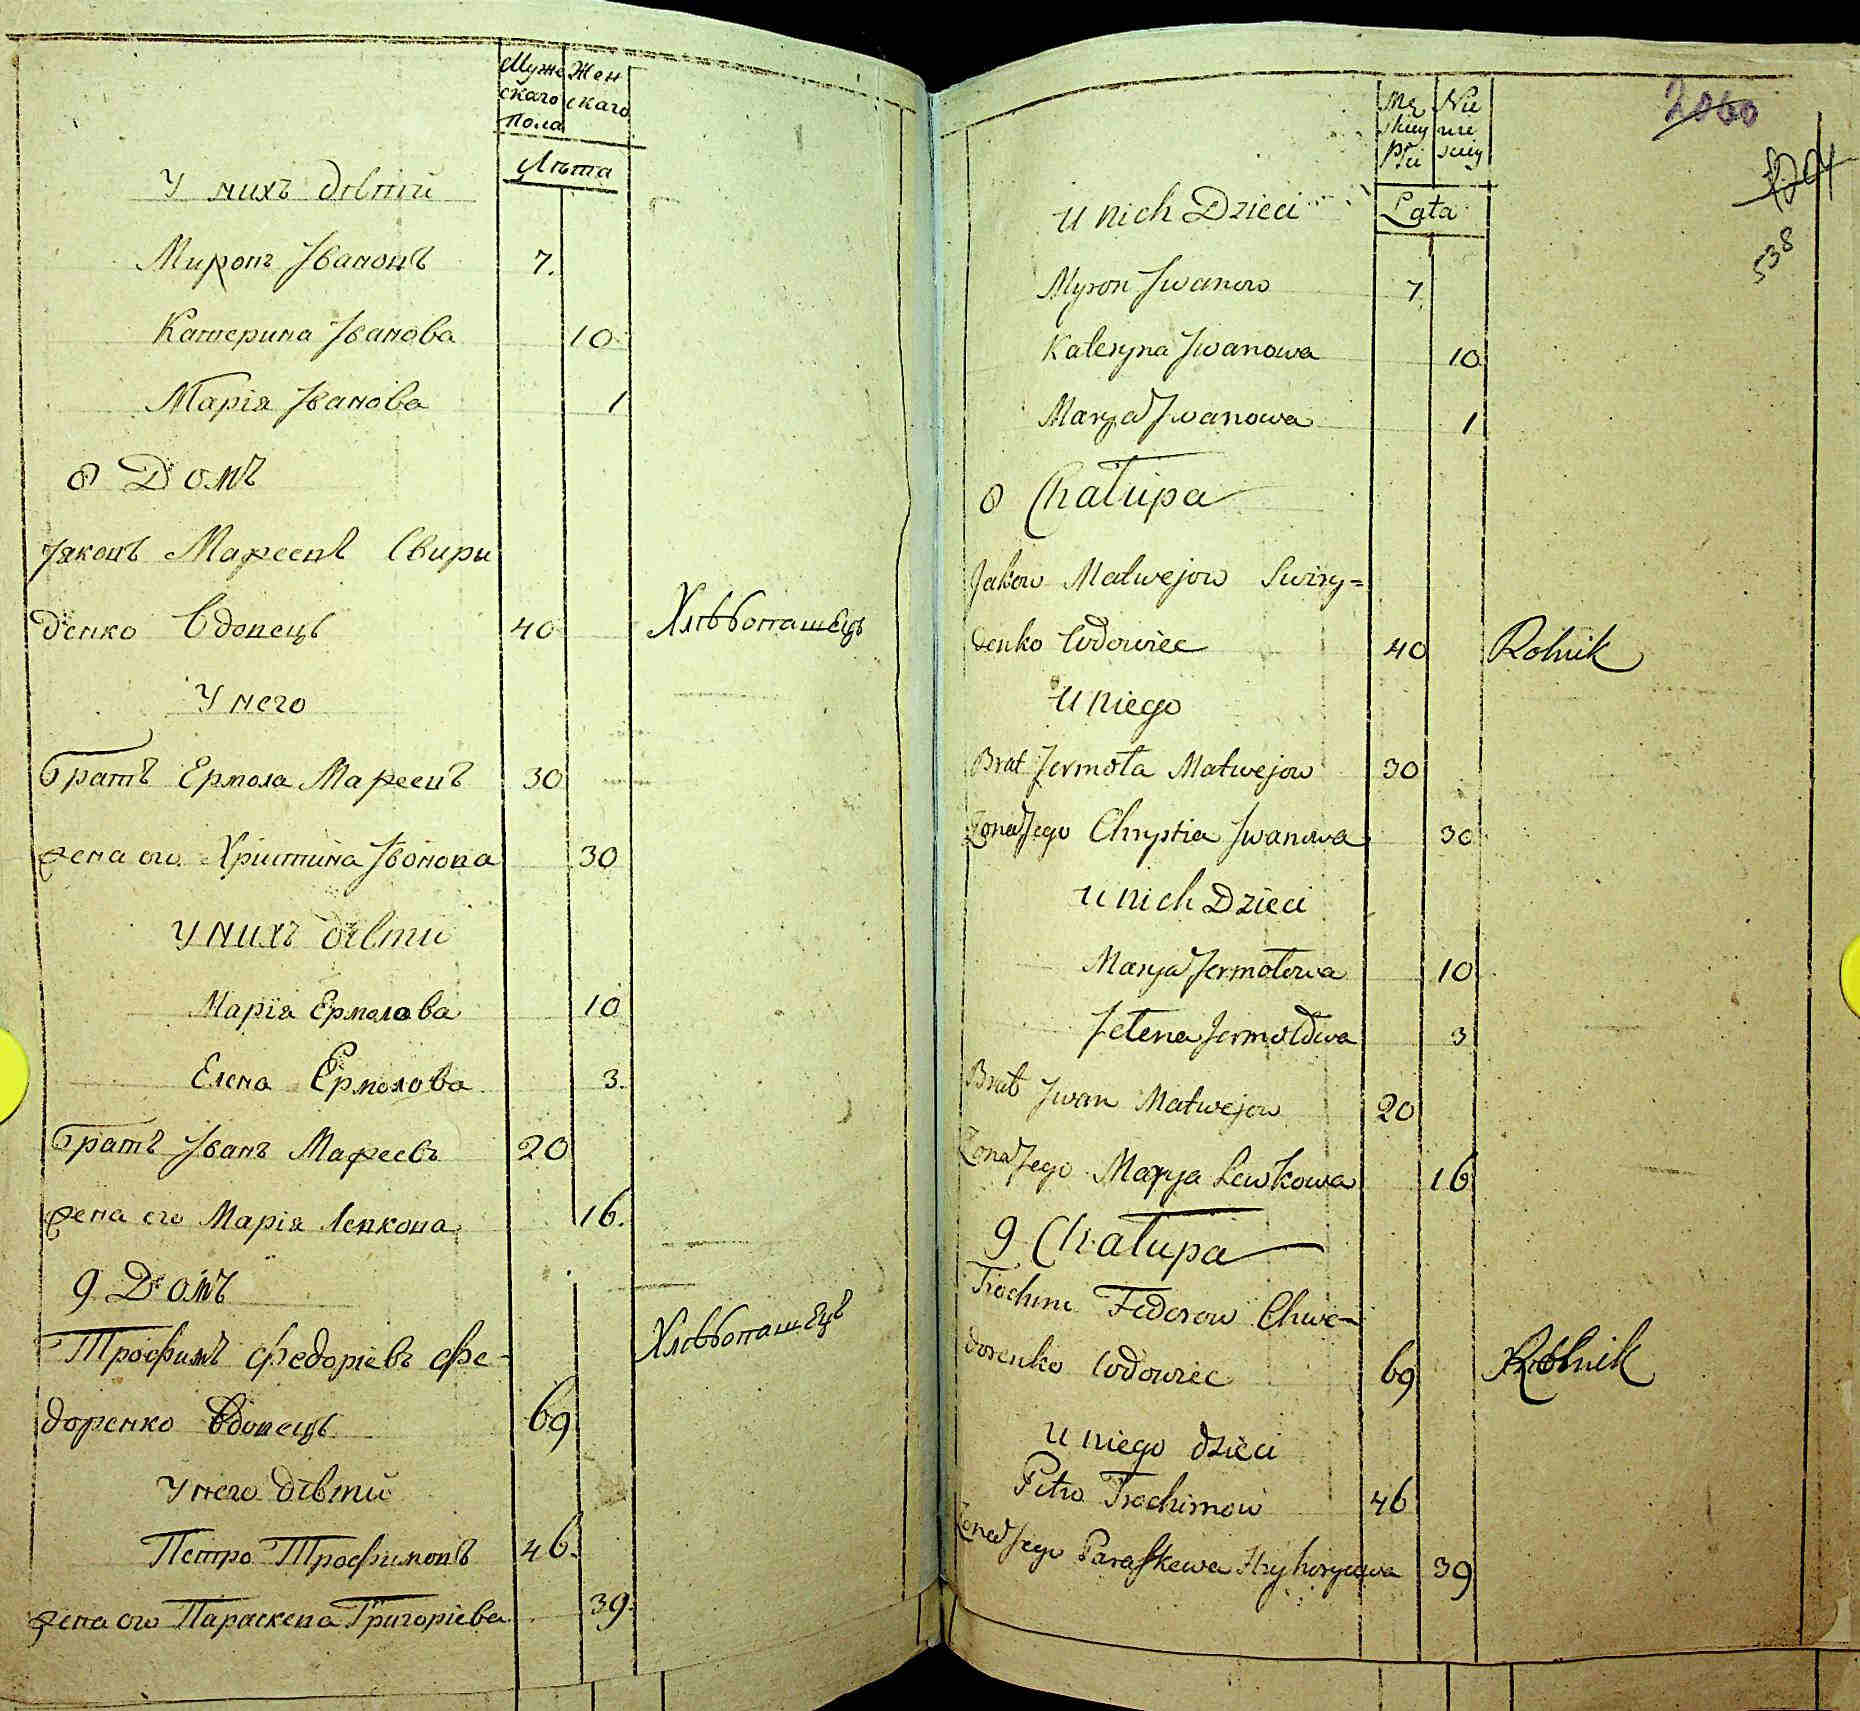 Муже
Жен
скаго
скаго
Пола
Лѣта
У нихъ дѣтей
Миронъ Ивановъ 7.
Катерина Иванова 10.
Марія Иванова 1
8 Домъ
Яковъ Мафеевъ Свири
денко вдовецъ 40 Хлѣбопашецъ
У него
братъ Ермола Мафеевъ 30
жена его Христина Иванова 30
У нихъ дѣтей
Марія Ермолова 10
Елена Ермолова 3.
братъ Иванъ Мафеевъ 20
жена его Марія Левкова 16.
9 Домъ
Трофимъ Федоріевъ Фе-
Хлѣбопашецъ
доренко вдовецъ 69
У него дѣтей
Петро Трофимовъ 46.
жена его Параскева Григоріева 39.
2060
538
Lata
U nich Dzieci
Myron Iwanow 7.
Kateryna Iwanowa 10
Marya Iwanowa 1
8 Chałupa
Jakow Matwejow Swiry=
denko wdowiec 40 Rolnik
U niego
Brat Jermoła Matwejow 30
Zona Jego Chrystia Iwanowa 30
U nich Dzieci
Marya Jermołowa 10
Jełena Jermołowa 3
Brat Iwan Matwejow 20
Zona Jego Marya Lewkowa 16
9 Chałupa
Trochim Fedorow Chwe-
dorenko wdowiec 69 Rolnik
U niego dzieci
Petro Trochimow 46
Zona Jego Paraskewa Hryhoryewa 39